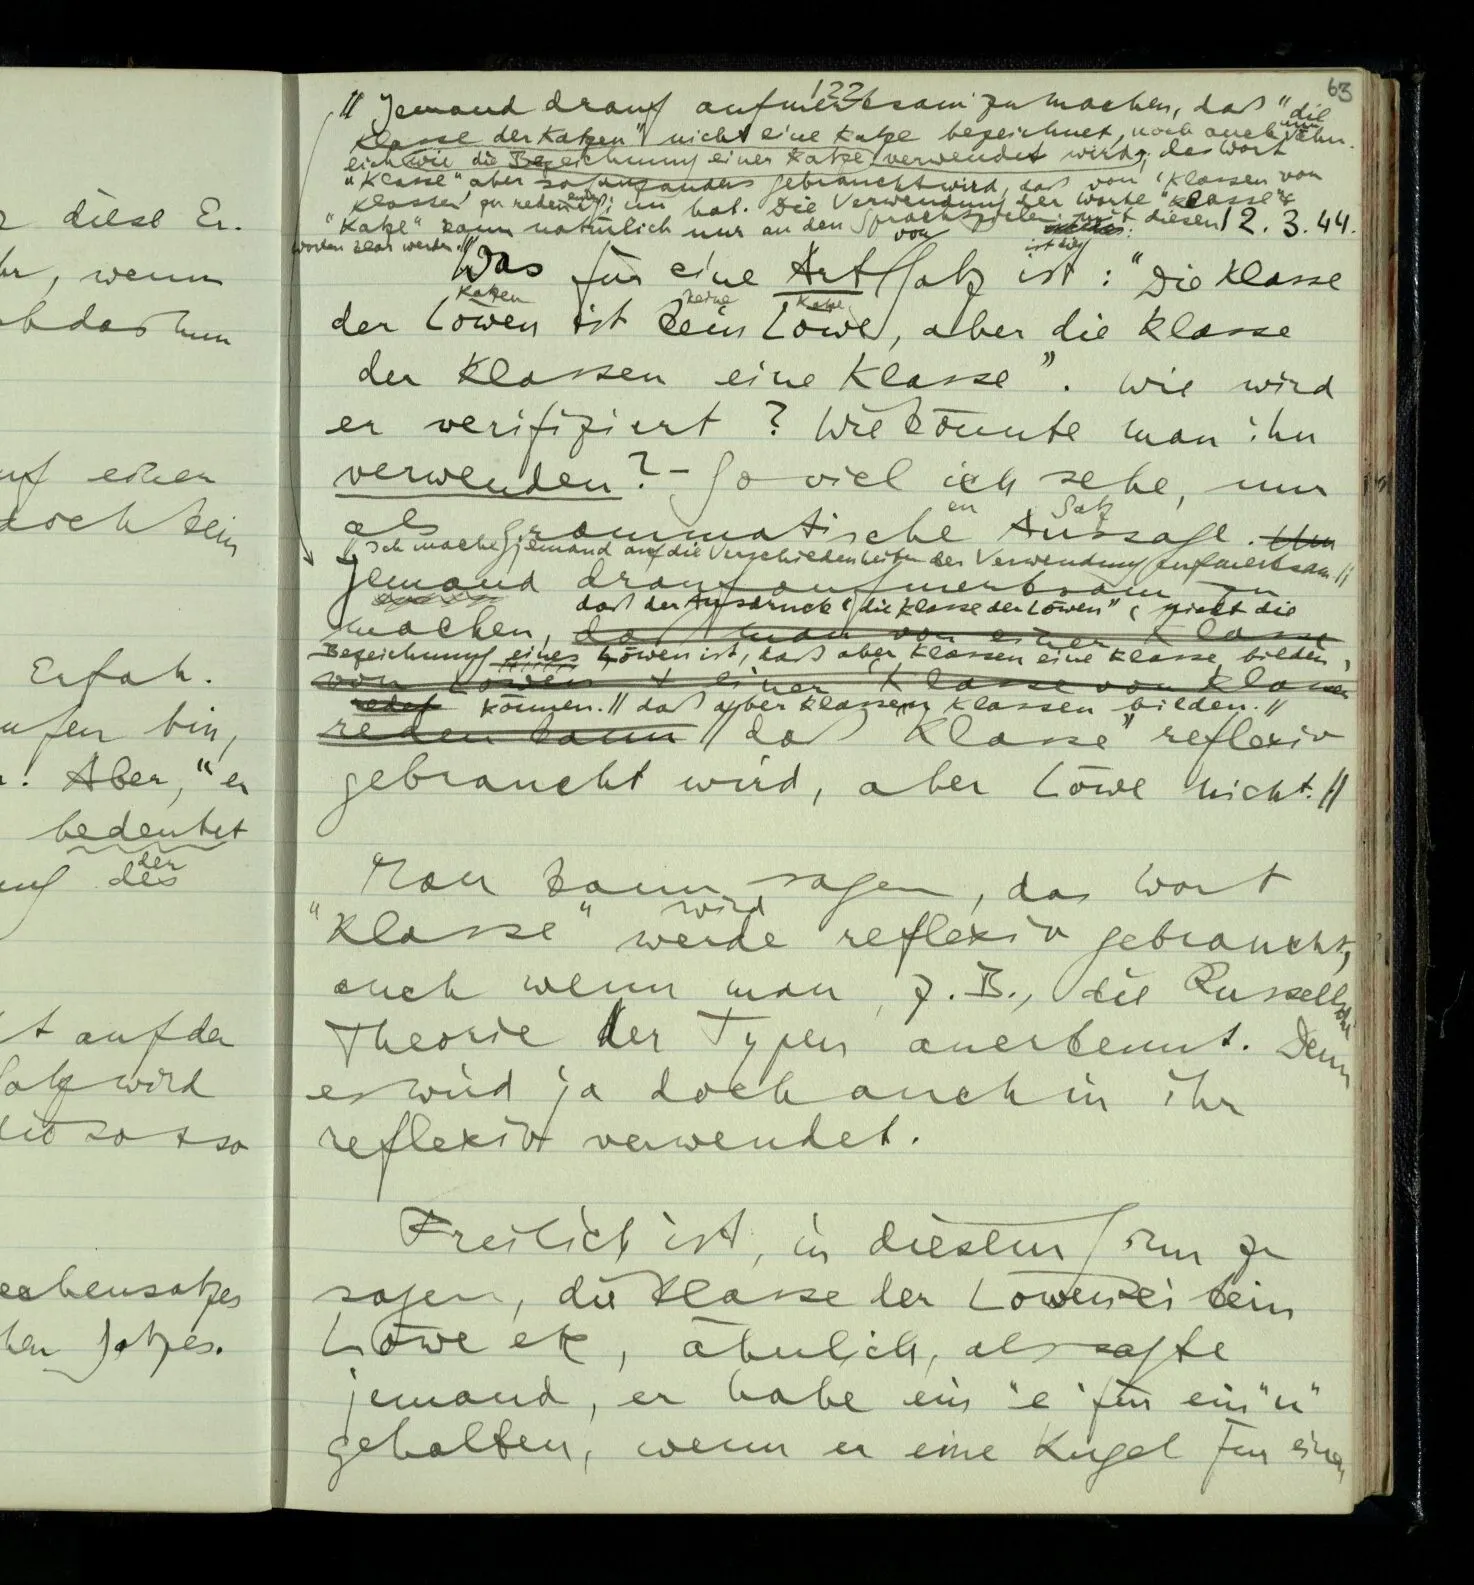 r diese Er.
hr, wenn
uf einen
doch kein
Erfah.
ufen bin,
r. Aber, "er
bedeutet
der
ung des
t auf der
Satz wird
so + so
echensatzes
hen Satzes.
122
63
// Jemand drauf aufmerksam zu machen, daß "die
Klasse der Katzen" nicht eine Katze bezeichnet, noch auch nur ähn-
lich wie die Bezeichnung einer Katze verwendet wird; das Wort
"Klasse" aber so ganz anders gebraucht wird, daß von 'Klassen von
Klassen' zu reden Sinn hat. Die Verwendung der Worte "Klasse" &
"Katze" kann natürlich nur an den Sprachspielen mit diesen
Worten klar werden. //
12. 3. 44.
von ist der
Was für eine Art Satz ist: "Die Klasse
Katzen keine Katze
der Löwen ist kein Löwe, aber die Klasse
der Klassen eine Klasse". Wie wird
er verifiziert? Wie könnte man ihn
verwenden? – So viel ich sehe, nur
er Satz
als grammatische Aussage. Um
// Ich mache jemand auf die Verschiedenheiten der Verwendung aufmerksam. //
Jemand drauf aufmerksam zu
daß der Ausdruck "die Klasse der Löwen" nicht die
machen, daß man von einer Klasse
Bezeichnung eines Löwen ist, daß aber Klassen eine Klasse bilden
von Löwen & einer Klasse von Klassen
können. // daß aber Klassen Klassen bilden. //
reden kann // daß "Klasse" reflexiv
gebraucht wird, aber Löwe nicht. //
Man kann sagen, das Wort
wird
"Klasse" werde reflexiv gebraucht,
auch wenn man, z.B., die Russellsche
Theorie der Typen anerkennt. Denn
es wird ja doch auch in ihr
reflexiv verwendet.
Freilich ist, in diesem Sinn zu
sagen, die Klasse der Löwen sei kein
Löwe etc, ähnlich, als sagte
jemand, er habe ein "e" für ein "u"
gehalten, wenn er eine Kugel für einen